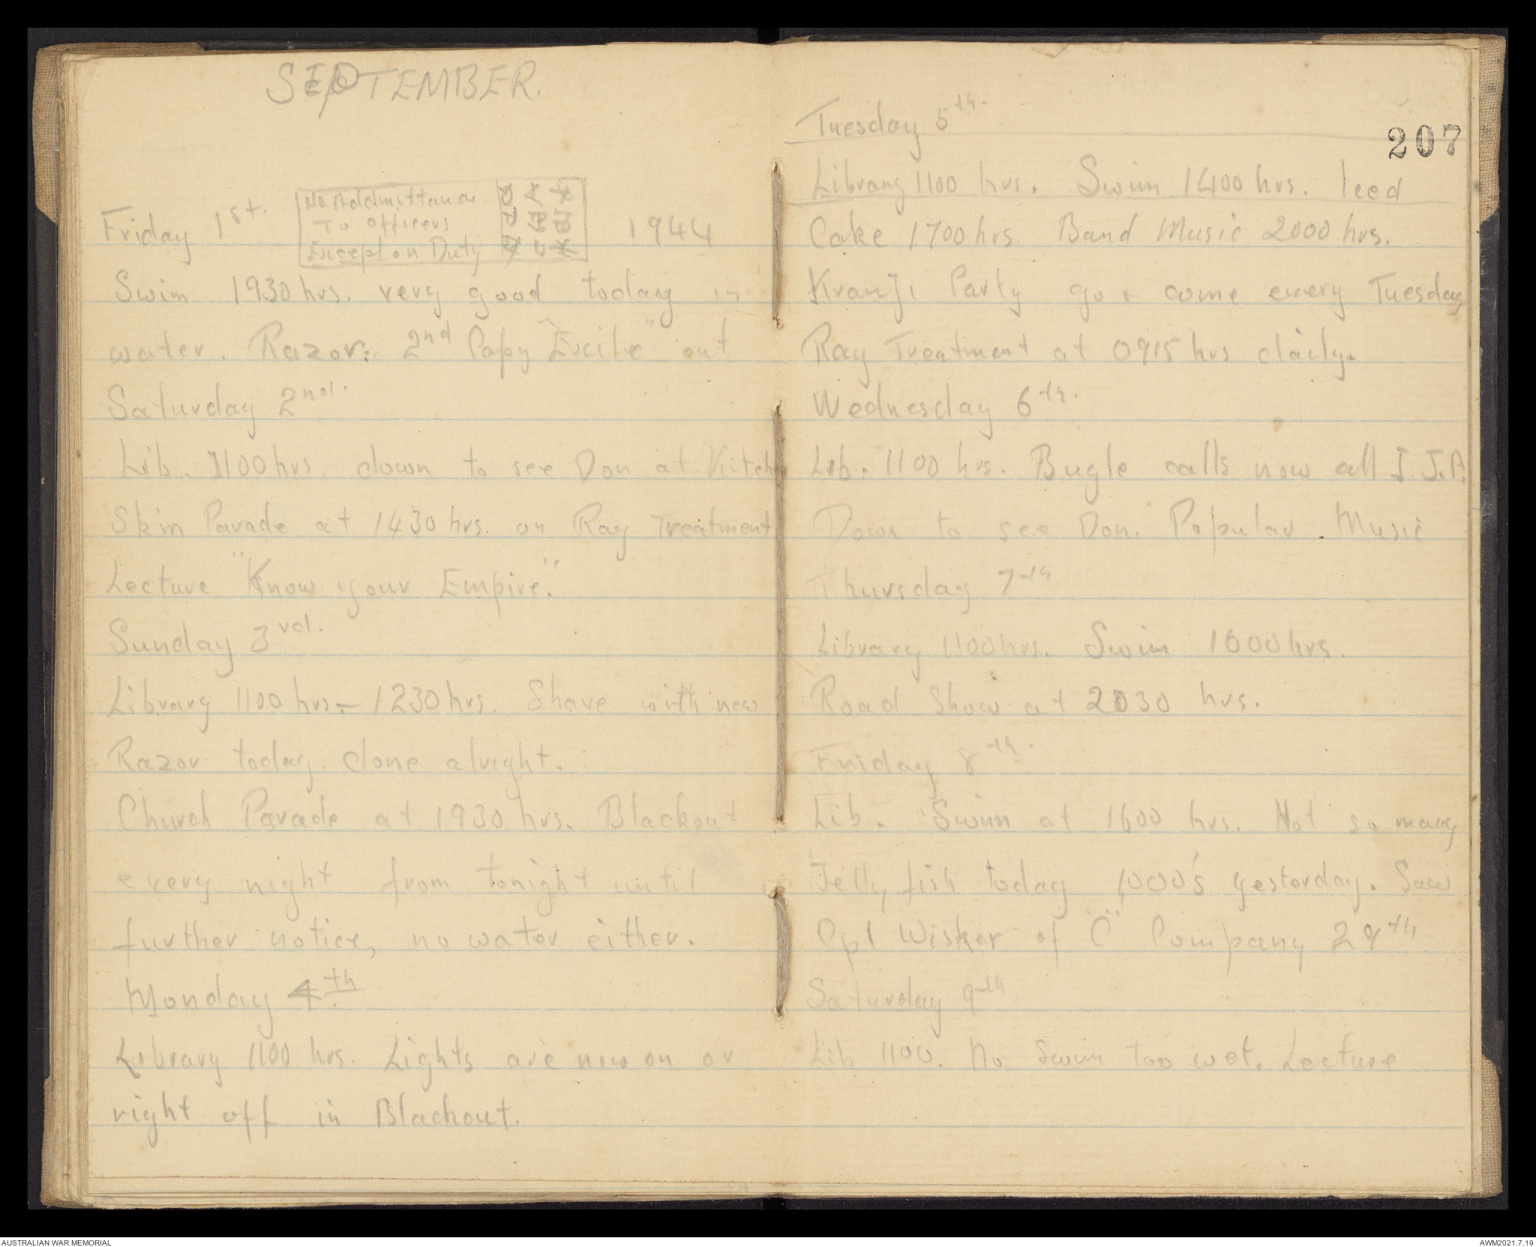 SEPTEMBER.
Friday 1st. 1944
No Addmittance
To officers
Except on Duty
Swim 1930 hrs. very good today in
water. Razor: 2nd Copy "Exile" out
Saturday 2nd.
Lib. 1100 hrs. down to see Don at Kitchen
Skin Parade at 1430 hrs. on Ray Treatment
Lecture "Know your Empire."
Sunday 3rd.
Library 1100 hrs - 1230 hrs. Shave with new
Razor today. done alright.
Church Parade at 1930 hrs. Blackout
every night from tonight until
further notice, no water either.
Monday 4th
Library 1100 hrs. Lights are now on or
right off in Blackout.
207
Tuesday 5th.
Library 1100 hrs. Swim 1400 hrs. Iced
Cake 1700 hrs. Band Music 2000 hrs.
Kranji Party go & come every Tuesday
Ray Treatment at 0915 hrs daily.
Wednesday 6th.
Lib. 1100 hrs. Bugle calls now all I.J.A.
Down to see Don. Popular Music
Thursday 7th
Library 1100 hrs. Swim 1600 hrs.
Road Show at 2030 hrs.
Friday 8th.
Lib. Swim at 1600 hrs. Not so many
Jelly fish today 1,000's yesterday. Saw
Cpl Wisker of "C" Company 29th
Saturday 9th
Lib 1100. No Swim too wet. Lecture
AUSTRALIAN WAR MEMORIAL
AWM2021.7.19